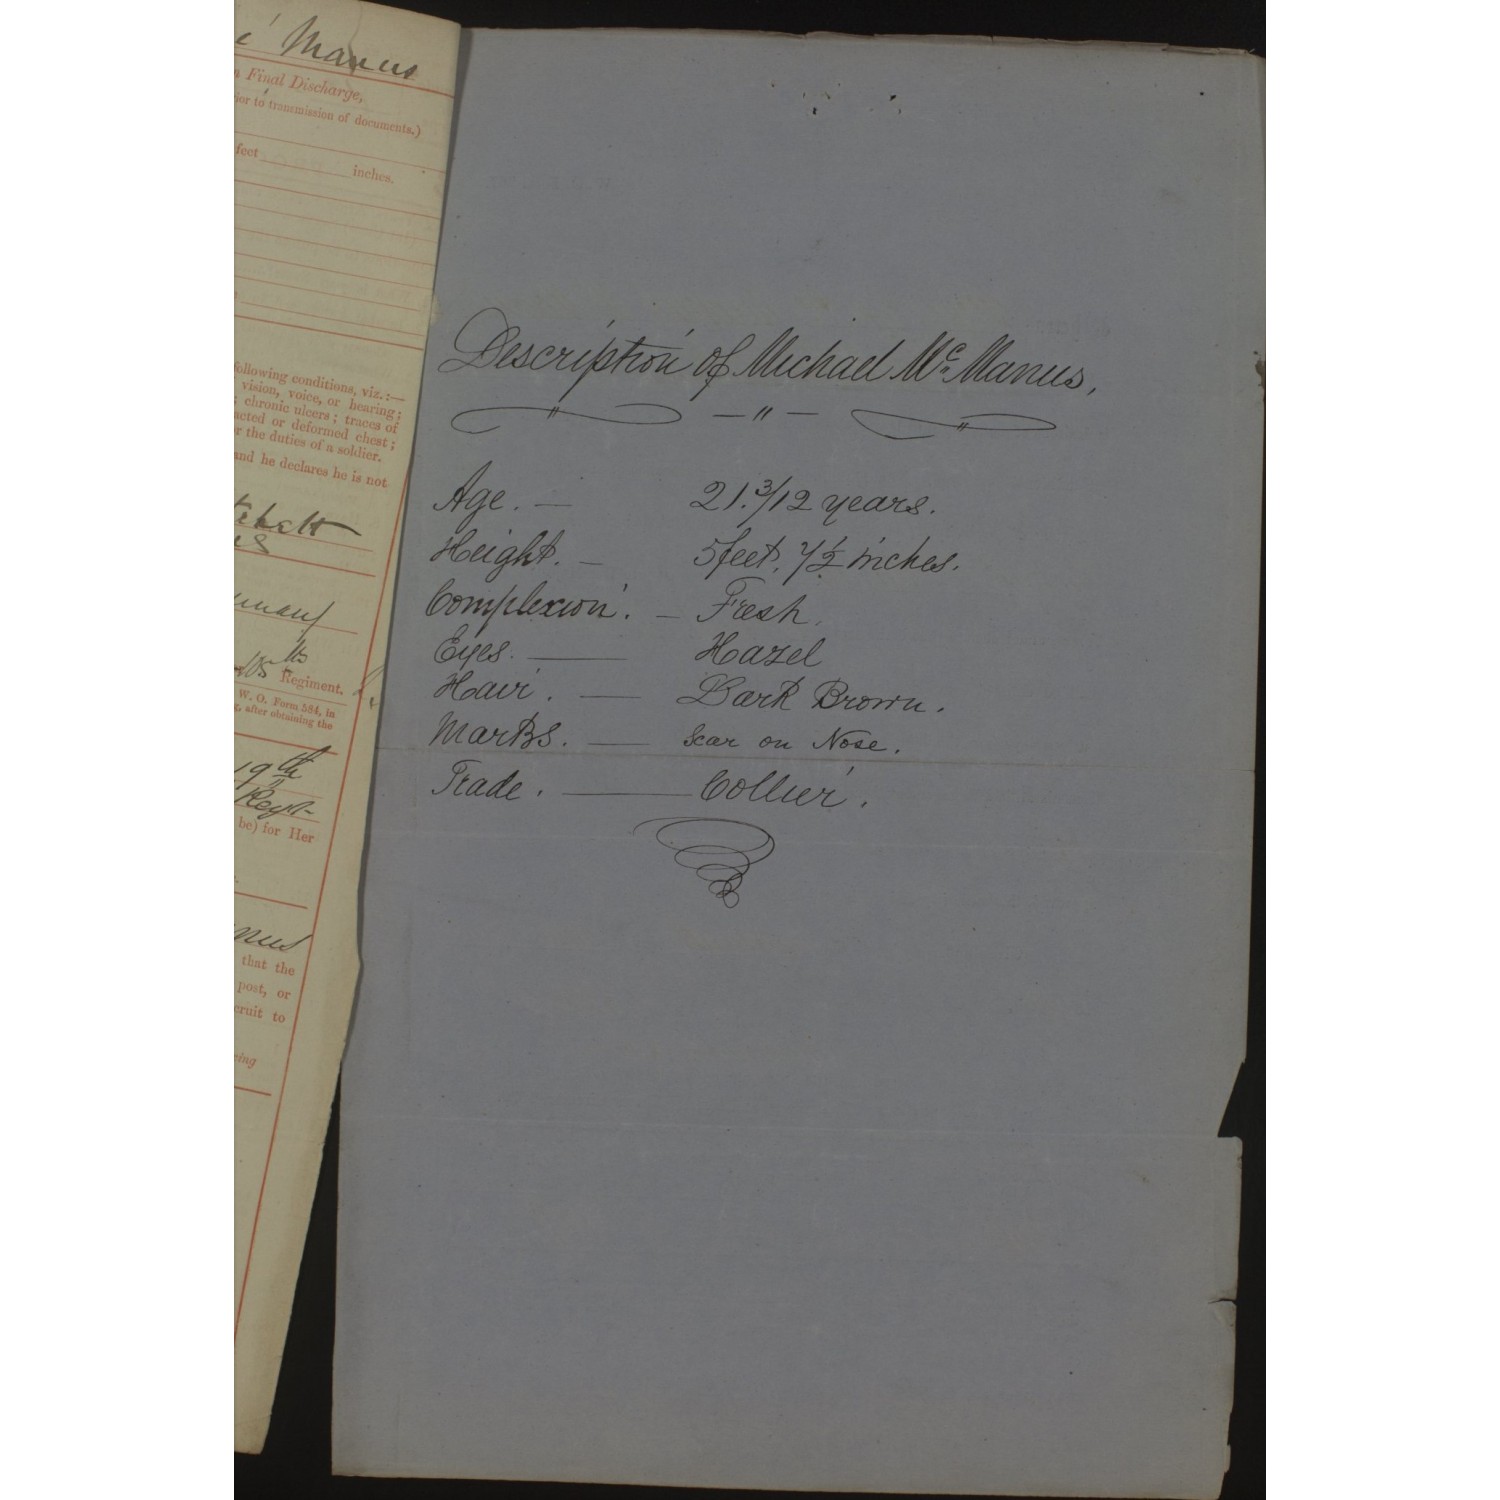 Manus
Final Discharge,
ior to transmission of documents.)
feet
inches.
following conditions, viz.:—
vision, voice, or hearing;
; chronic ulcers; traces of
acted or deformed chest;
r the duties of a soldier.
and he declares he is not
105th Regiment.
W. O. Form 584, in
g, after obtaining the
19th
Regt
be) for Her
nus
that the
post, or
cruit to
cing
Description of Michael Mc Manus.
— " —
Age. — 21.3/12 years.
Height. — 5 feet, 7½ inches.
Complexion. — Fresh.
Eyes. — Hazel
Hair. — Dark Brown.
Marks. — Scar on Nose.
Trade. — Collier.